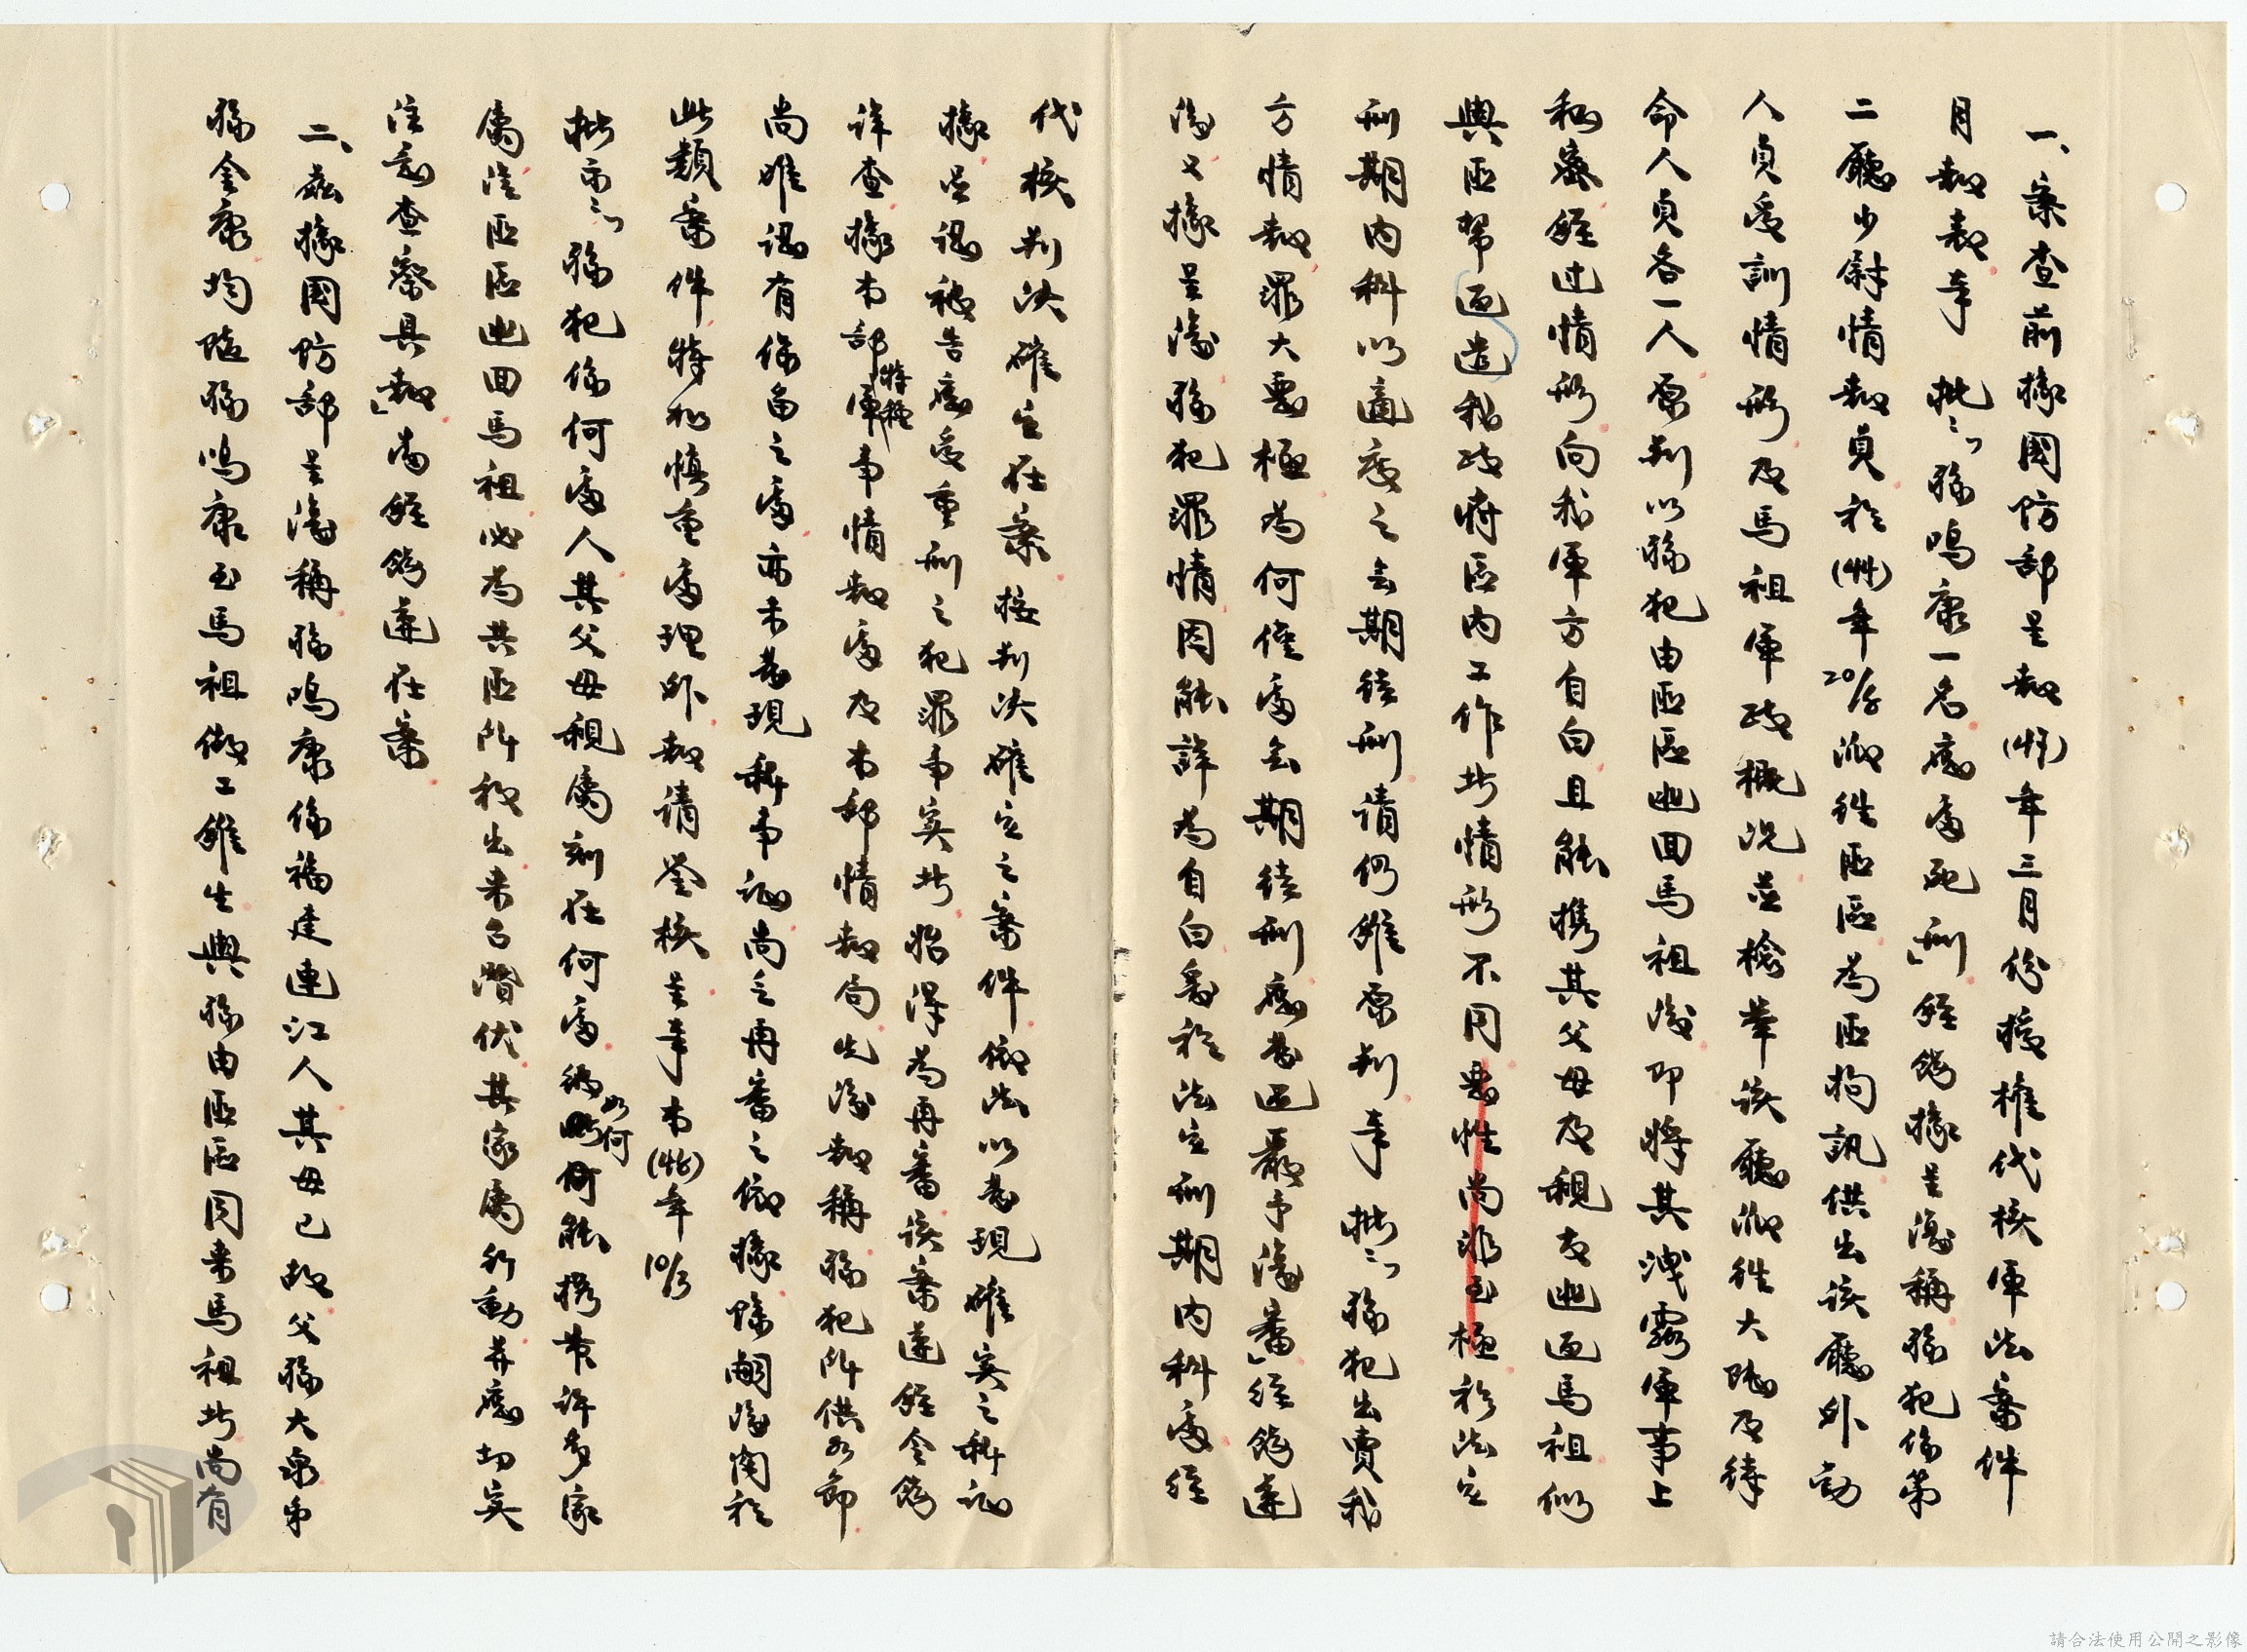 一、案查前據國防部呈報(卌五)年三月份授權代核軍法案件
月報表奉 批：「孫鳴康一名應處死刑」經飭據呈復稱孫犯係第
二廳少尉情報員於(卌)年20/8派往匪區為匪拘訊供出該廳外勤
人員受訓情形及馬祖軍政概況並檢舉該廳派往大陸及待
命人員各一人原判以孫犯由匪區逃回馬祖後即將其洩露軍事上
秘密經過情形向我軍方自白且能攜其父母及親友逃返馬祖似
與匪幫逼遣我政府區內工作者情形不同惡性尚非至極於法定
刑期內科以適度之無期徒刑請仍維原判奉 批：「孫犯出賣我
方情報罪大惡極為何僅處無期徒刑應發還嚴予復審」經飭遵
復又據呈復孫犯犯罪情因能詳為自白爰於法定刑期內科處經
代核判決確定在案按判決確定之案件倘無以發現確實之科證
據足認被告應受重刑之犯罪事實者始得為再審該案遵經令飭
詳查據本部特種軍事情報處及本部情報局先復報稱孫犯所供各節
尚難認有偽匿之處亦未發現新事證尚無再審之倘據除嗣後關於
此類案件特加慎重處理外報請鑒核等奉本(卌六)年10/3
批示：「孫犯係何處人其父母親屬刻在何處為如何能攜帶許多家
屬從匪區逃回馬祖必為共匪所放出來台潛伏其家屬行動并應切實
注意查察具報」當經飭遵在案
二、茲據國防部呈復稱孫鳴康係福建連江人其母已故父孫大弟弟
孫金康均隨孫鳴康至馬祖做工維生與孫由匪區同來馬祖者尚有
請合法使用公開之影像